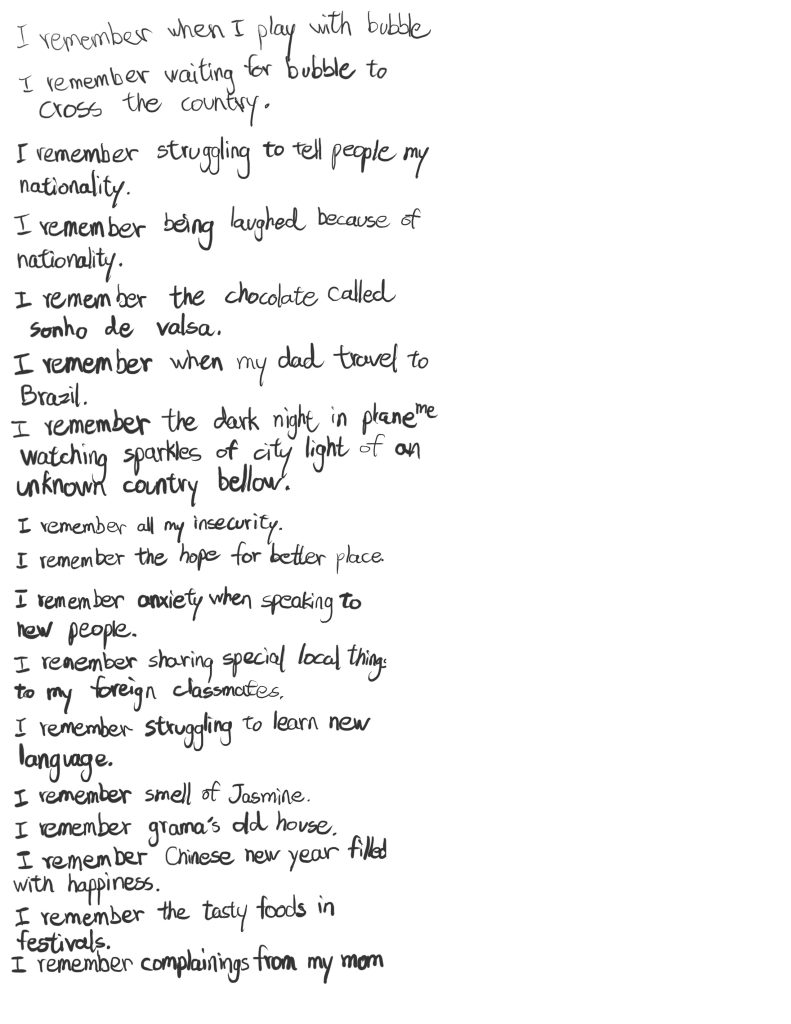 I remember when I play with bubble
I remember waiting for bubble to
cross the country.
I remember struggling to tell people my
nationality.
I remember being laughed because of
nationality.
I remember the chocolate called
sonho de valsa.
I remember when my dad travel to
Brazil.
I remember the dark night in plane me
watching sparkles of city light of an
unknown country bellow.
I remember all my insecurity.
I remember the hope for better place.
I remember anxiety when speaking to
new people.
I remember sharing special local things
to my foreign classmates.
I remember struggling to learn new
language.
I remember smell of Jasmine.
I remember grama's old house.
I remember Chinese new year filled
with happiness.
I remember the tasty foods in
festivals.
I remember complainings from my mom